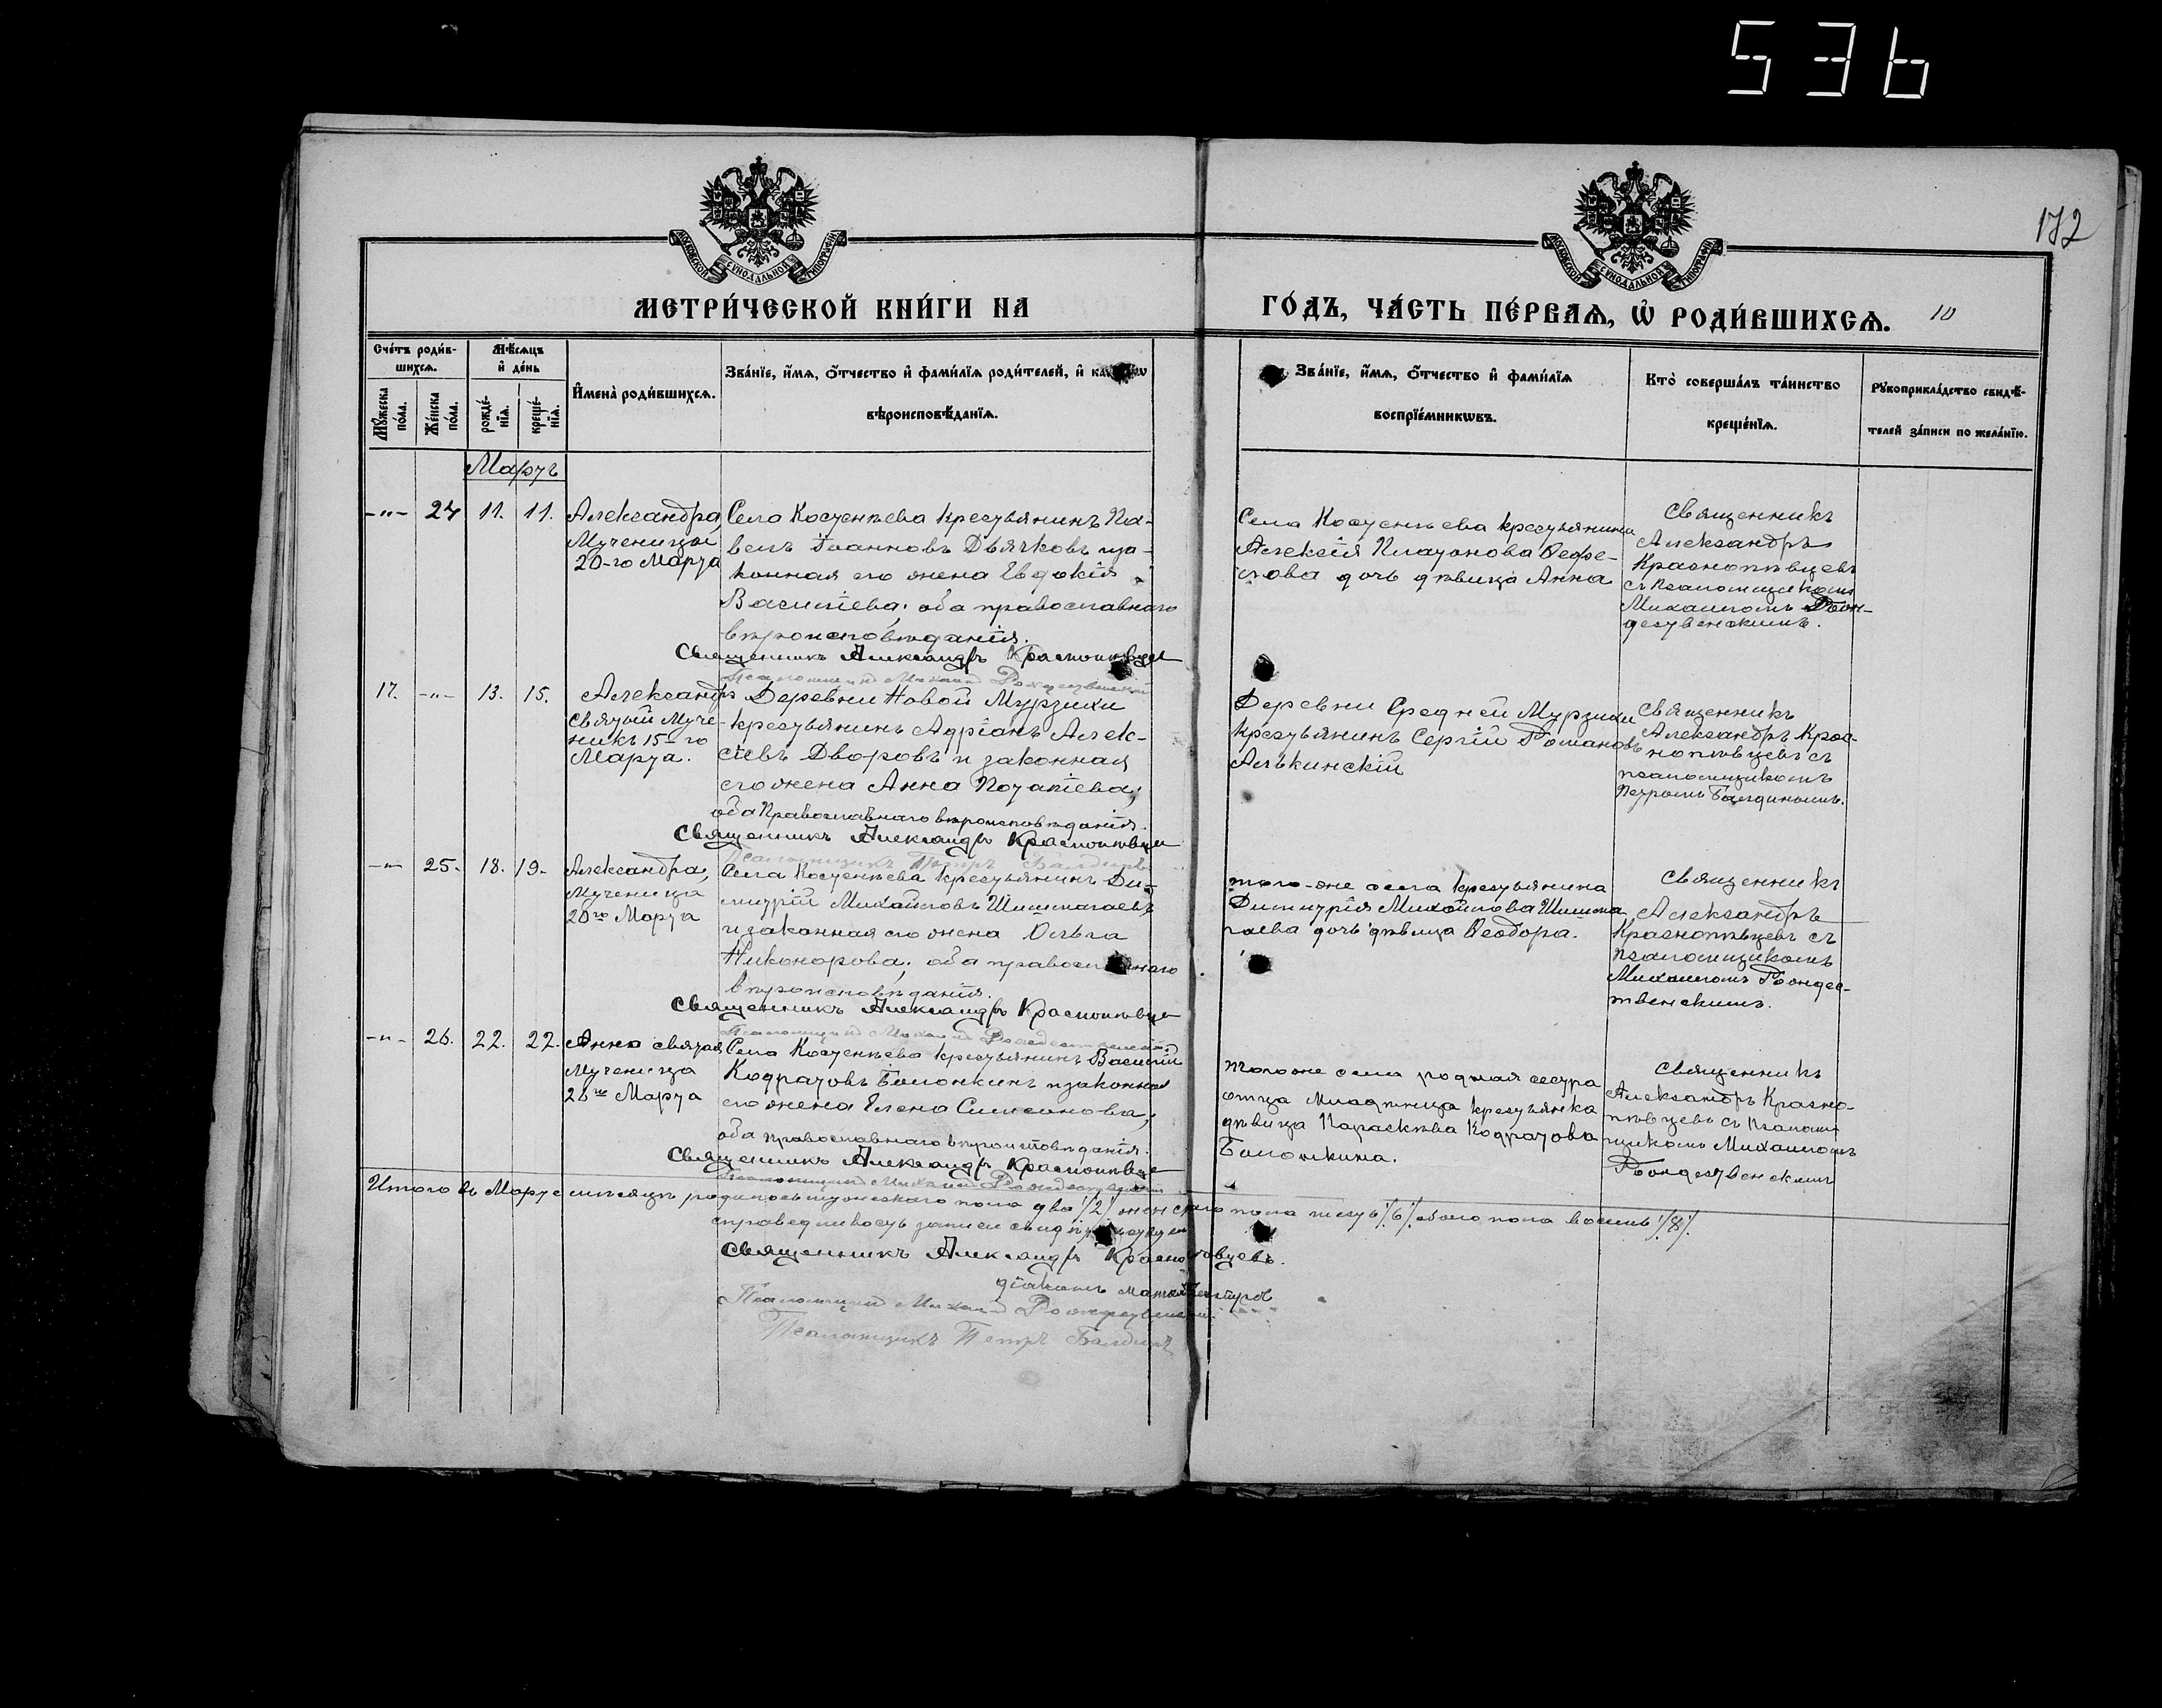 536
172
МОСКОВСКОЙ СУНОДАЛЬНОЙ ТИПОГРАФІИ
МОСКОВСКОЙ СУНОДАЛЬНОЙ ТИПОГРАФІИ
МЕТРИ́ЧЕСКОЙ КНИ́ГИ НА
ГО́ДЪ, ЧА́СТЬ ПЕ́РВАѦ, Ѡ҆ РОДИ́ВШИХСѦ.
10
Сче́тъ роди́в-
шихсѧ.
Мѣ́сѧцъ
и҆ де́нь
Мꙋ́жеска по́ла.
Же́нска по́ла.
рожде́-нїѧ.
креще́-нїѧ.
И҆мена̀ роди́вшихсѧ.
Зва́нїе, и҆́мѧ, о҆́тчество и҆ фами́лїѧ роди́телей, и҆
вѣроисповѣ́данїѧ.
Зва́нїе, и҆́мѧ, о҆́тчество и҆ фами́лїѧ
воспрїе́мникѡвъ.
Кто̀ соверша́лъ та́инство
креще́нїѧ.
Рꙋкоприкла́дство свидѣ́-
телей за́писи по жела́нїю.
Мартъ
-"- 24 11. 11.
Александра,
Мученицы
20-го Марта
Села Костенѣева крестьянинъ Па-
велъ Іоанновъ Дьячковъ и за-
конная его жена Евдокія
Васильева; оба православнаго
вѣроисповѣданія.
Священникъ Александръ Краснопѣвцев
Псаломщикъ Михаилъ Рождественскій
Села Костенѣева крестьянина
Алексія Платонова
дочь дѣвица Анна
Священникъ
Александръ
Краснопѣвцевъ
съ псаломщикомъ
Михаиломъ Рож-
дественскимъ.
17. -"- 13. 15.
Александръ
святый Муче-
никъ 15-го
Марта.
Деревни Новой Мурзихи
крестьянинъ Адріанъ Алек-
сіевъ Дворовъ и законная
его жена Анна Потапіева;
оба Православнаго вѣроисповѣданія.
Священникъ Александръ Краснопѣвцев
Псаломщикъ Петръ Балдинъ
Деревни Средней Мурзихи
крестьянинъ Сергій Романовъ
Алькинскій
Священникъ
Александръ Крас-
нопѣвцевъ съ
псаломщикомъ
Петромъ Балдинымъ.
-"- 25. 18. 19.
Александра,
Мученица
20го Марта
Села Костенѣева крестьянинъ Ди-
митрій Михайловъ Шишмагаевъ
и законная его жена Ольга
Никонорова; оба православнаго
вѣроисповѣданія.
Священникъ Александръ Краснопѣвцев
Псаломщикъ Михаилъ Рождественскій
того-же села крестьянина
Димитрія Михайлова Шишма
гаева дочь дѣвица Ѳеодора.
Священникъ
Александръ
Краснопѣвцевъ съ
псаломщикомъ
Михаиломъ Рождес-
твенскимъ.
-"- 26. 22. 22.
Анна святая
Мученица
26го Марта
Села Костенѣева крестьянинъ Василій
Кодратовъ Болонкинъ и законная
его жена Елена Симеонова;
оба православнаго вѣроисповѣданія.
Священникъ Александръ Краснопѣвцев
Псаломщикъ Михаилъ Рождественскій
того же села родная сестра
отца младенца крестьянка
дѣвица Параскѣва Кодратова
Болонкина.
Священникъ
Александръ Красно-
пѣвцевъ съ псалом-
щикомъ Михаиломъ
Рождественскимъ
Итого въ Мартѣ мѣсяцѣ родилось мужескаго пола два /2/ женскаго пола шесть /6/. обоего пола восемь /8/.
справедливость записи свидѣтельствуемъ
Священникъ Александръ Краснопѣвцевъ.
діаконъ
Псаломщикъ Михаилъ Рождественскій.
Псаломщикъ Петръ Балдинъ